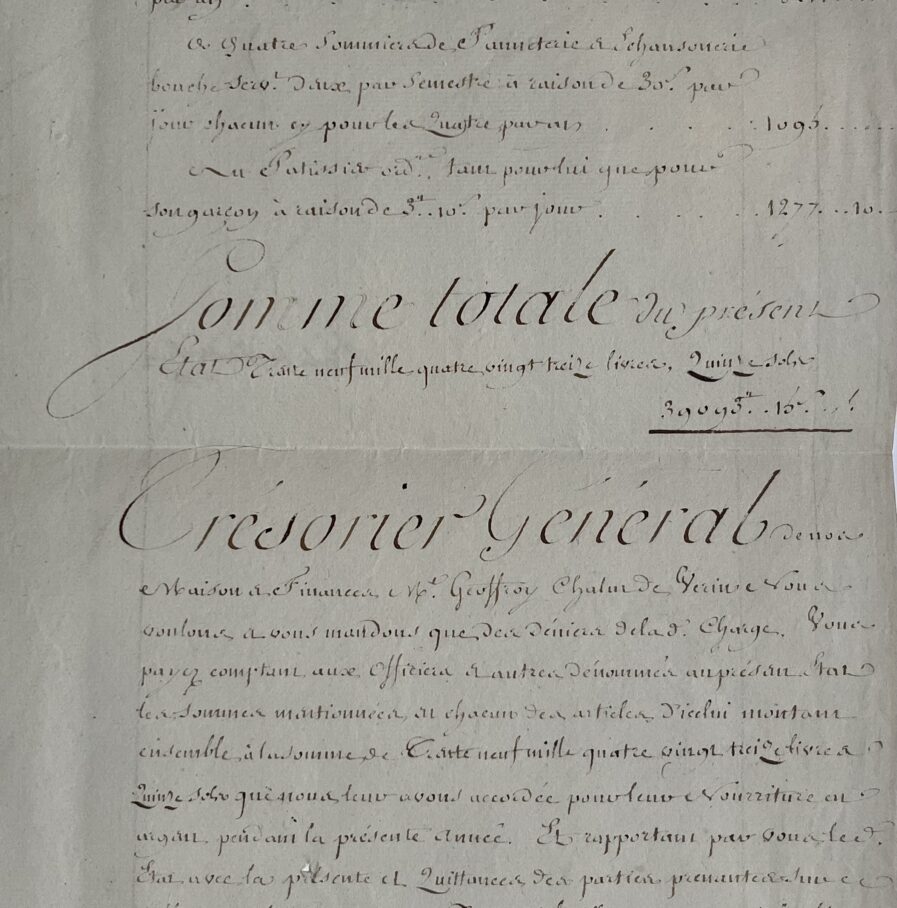 par an
A Quatre Sommiers de Panneterie & Echansonerie
bouche serv.t deux par Semestre à raison de 30.s par
jour chacun cy pour les Quatre par an . . . . . 1095. . . . .
Au Patissier ord.re tant pour lui que pour
son garçon à raison de 3.tt 10.s par jour . . . . . 1277. . . 10. .
Somme totale du présent
Etat Trente neuf mille quatre vingt treize livres, Quinze sols
39093.tt 15.s
Trésorier Général de nos
Maison & Finances M.e Geoffroy Chalut de Verin Nous
voulons & vous mandons que des déniers de la d. Charge, Vous
payez comptant aux Officiers & autres dénommés au présent Etat
les sommes mentionnées en chacun des articles d'icelui montant
ensemble à la somme de Trente neuf mille quatre vingt treize livres
Quinze sols que nous leur avons accordée pour leur Nourriture en
argent pendant la présente année. Et rapportant par vous le d.
Etat avec la présente et Quittances des parties prenantes sur ce